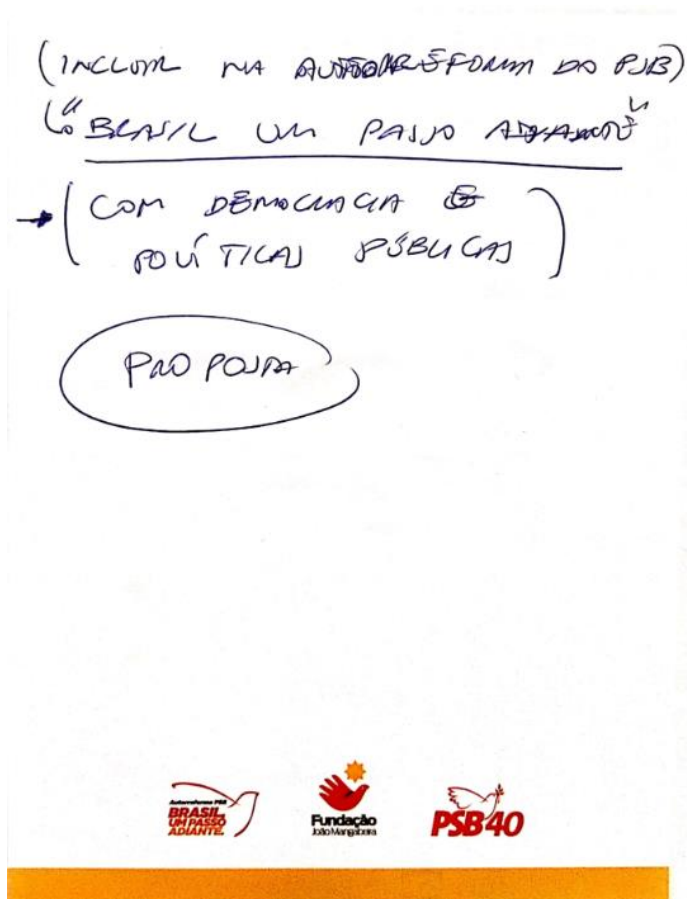 (INCLUIR NA AUTORREFORMA DO PSB)
"O BRASIL UM PASSO ADIANTE"
(COM DEMOCRACIA E
POLÍTICAS PÚBLICAS)
PROPOSTA
Autorreforma PSB
BRASIL
UM PASSO
ADIANTE.
Fundação
João Mangabeira
PSB 40